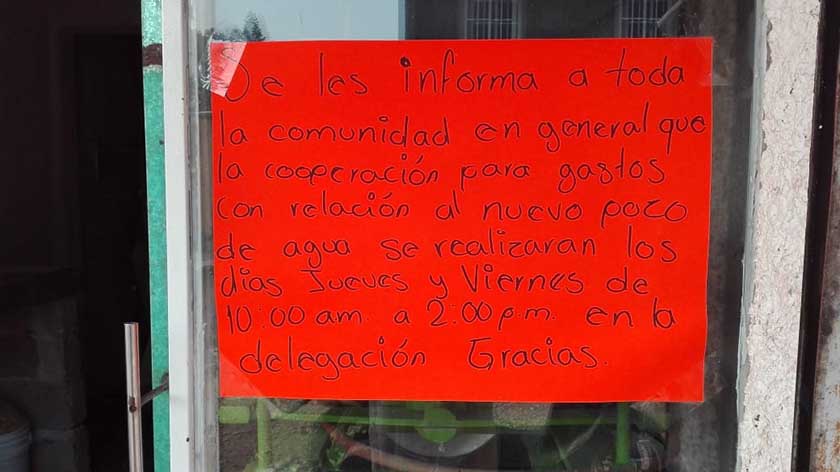 Se les informa a toda
la comunidad en general que
la cooperación para gastos
con relación al nuevo pozo
de agua se realizaran los
días Jueves y Viernes de
10:00 am. a 2:00 p.m. en la
delegación Gracias.